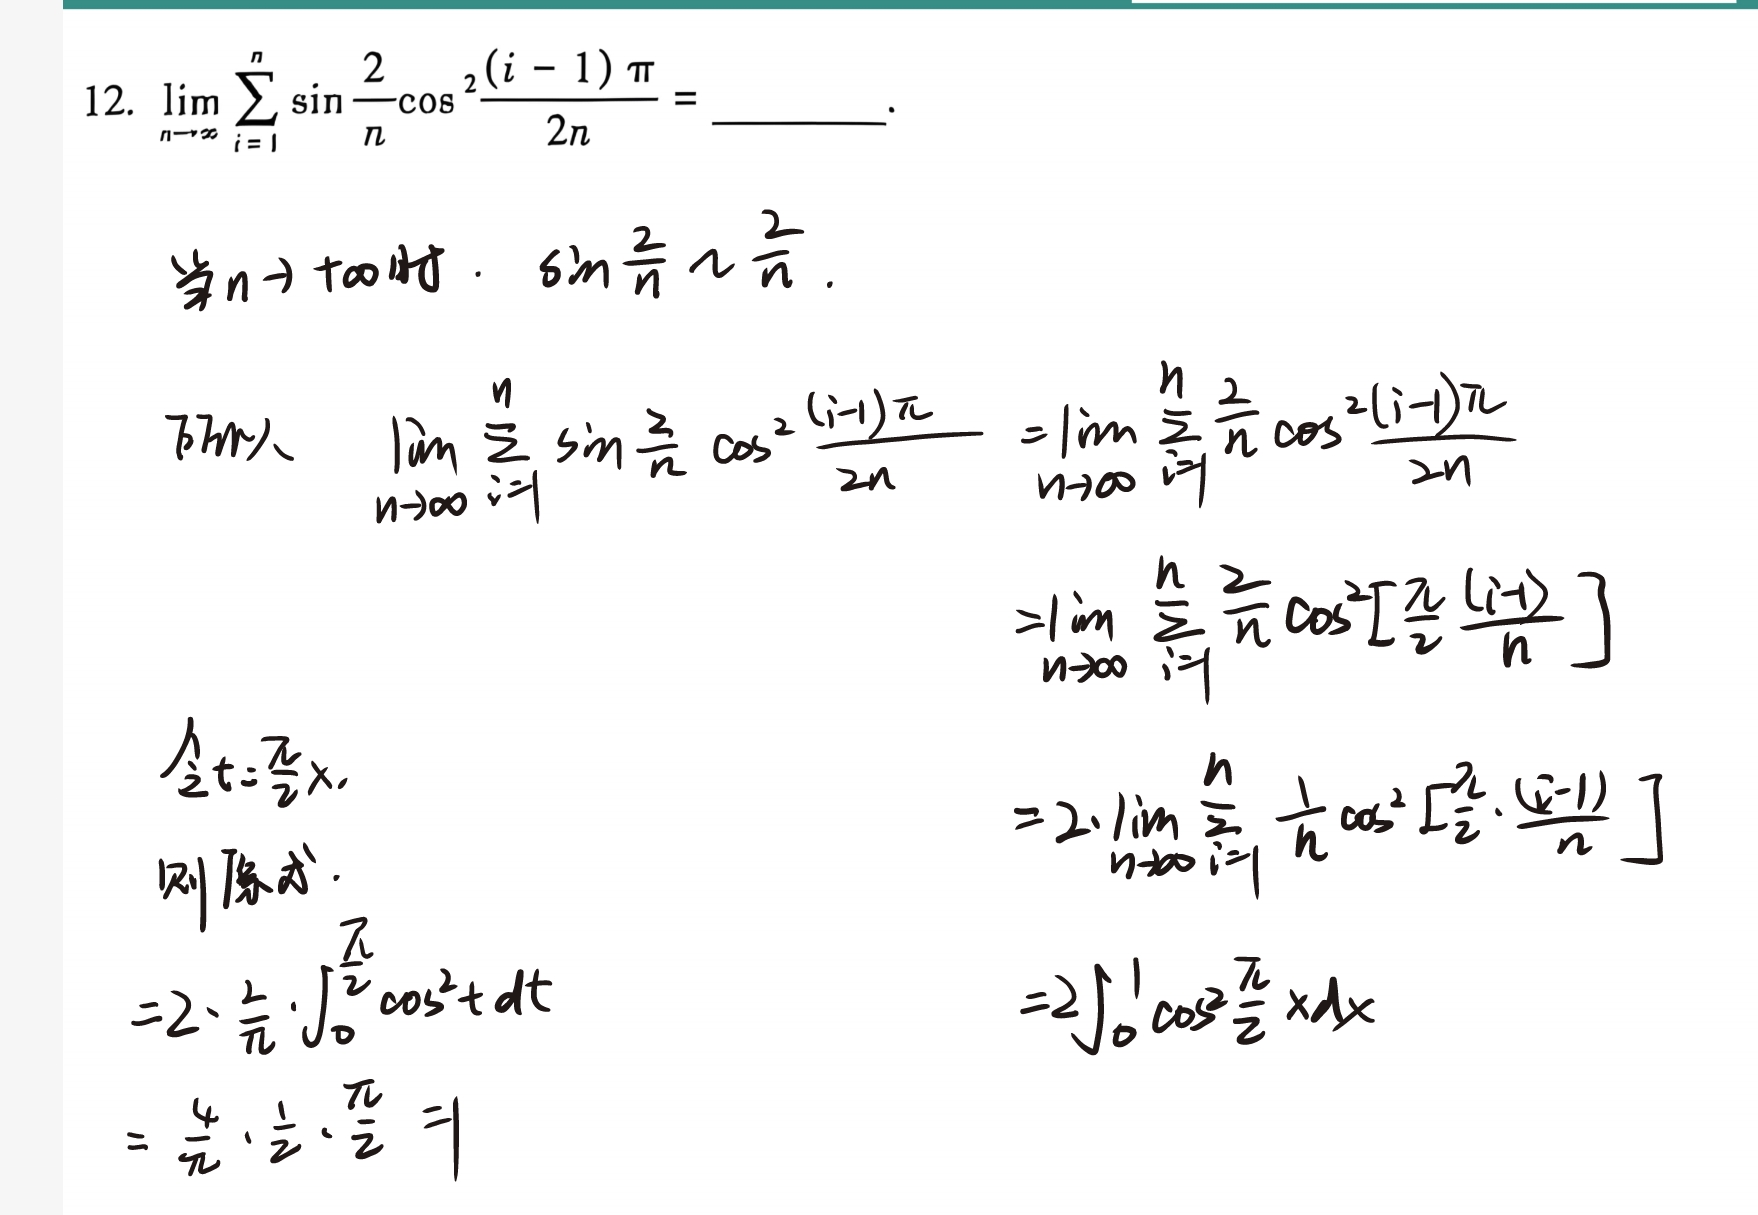 12. lim_{n→∞} ∑_{i=1}^{n} sin 2/n cos² (i − 1)π/2n = ______.
当n→+∞时. sin 2/n ~ 2/n.
所以 lim_{n→∞} ∑_{i=1}^{n} sin 2/n cos² (i-1)π/2n = lim_{n→∞} ∑_{i=1}^{n} 2/n cos² (i-1)π/2n
= lim_{n→∞} ∑_{i=1}^{n} 2/n cos² [π/2 (i-1)/n]
= 2·lim_{n→∞} ∑_{i=1}^{n} 1/n cos² [π/2 · (i-1)/n]
= 2∫_0^1 cos² π/2 x dx
令t=π/2 x,
则原式.
= 2·2/π·∫_0^{π/2} cos²t dt
= 4/π · 1/2 · π/2 = 1